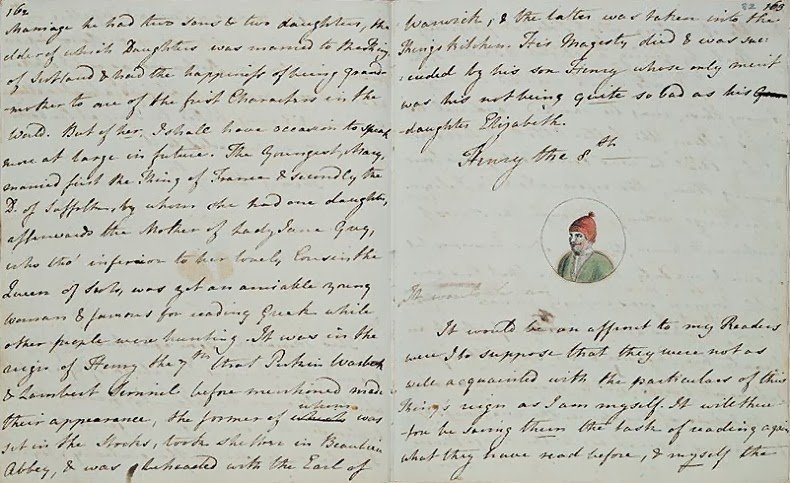 162
Marriage he had two sons & two daughters, the
elder of which Daughters was married to the King
of Scotland & had the happiness of being grand-
mother to one of the first Characters in the
World. But of her, I shall have occasion to speak
more at large in future. The Youngest, Mary,
married first the King of France & secondly the
D. of Suffolk, by whom she had one daughter,
afterwards the Mother of Lady Jane Grey,
who tho' inferior to her lovely Cousin the
Queen of Scots, was yet an amiable young
woman & famous for reading Greek while
other people were hunting. It was in the
reign of Henry the 7th that Perkin Warbeck
& Lambert Simnel before mentioned made
their appearance, the former of whom was
set in the Stocks, took shelter in Beaulieu
Abbey, & was beheaded with the Earl of
22 163
Warwick, & the latter was taken into the
Kings kitchen. His Majesty died & was suc-
:ceeded by his son Henry whose only merit
was his not being quite so bad as his
daughter Elizabeth.
Henry the 8th
It would be
It would be an affront to my Readers
were I to suppose that they were not as
well acquainted with the particulars of this
King's reign as I am myself. It will there-
-fore be saving them the task of reading again
what they have read before, & myself the